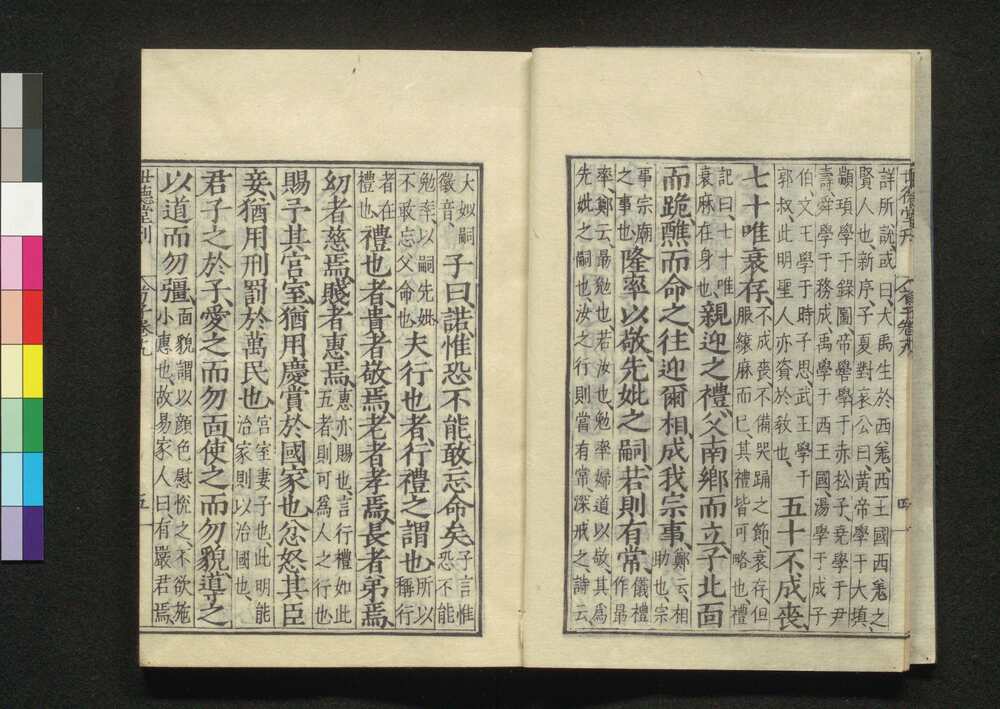 世德堂刊
荀子卷十九
四
詳所說、或曰、大禹生於西羌西王國西羌之
賢人也、新序、子夏對哀公曰、黃帝學于大填、
顓頊學于錄圖、帝嚳學于赤松子、堯學于尹
壽、舜學于務成、禹學于西王國、湯學于成子
伯、文王學于時子思、武王學于
郭叔、此明聖人亦資於敎也、
五十不成喪、
七十唯衰存、
不成喪、不備哭踊之節、衰存、但
服縗麻而已、其禮皆可略也、禮
記曰、七十唯
衰麻在身也、
親迎之禮、父南鄉而立、子北面
而跪、醮而命之、往迎爾相、成我宗事、
鄭云、相
助也、宗
事、宗廟
之事也、
隆率以敬、先妣之嗣、若則有常、
儀禮
作勗
率、鄭云、勗勉也、若汝也、勉率婦道以敬、其爲
先妣之嗣也、汝之行則當有常、深戒之、詩云、
大姒嗣
徽音、
子曰、諾、惟恐不能、敢忘命矣、
子言惟
恐不能
勉率以嗣先妣、
不敢忘父命也、
夫行也者、行禮之謂也、
所以
稱行
者在
禮也、
禮也者、貴者敬焉、老者孝焉、長者弟焉、
幼者慈焉、賤者惠焉、
惠亦賜也、言行禮如此
五者、則可爲人之行也、
賜予其宮室、猶用慶賞於國家也、忿怒其臣
妾、猶用刑罰於萬民也、
宮室妻子也、此明能
治家則以治國也、
君子之於子、愛之而勿面、使之而勿貌、導之
以道而勿彊、
面貌謂以顏色慰悅之、不欲施
小惠也、故易家人曰、有嚴君焉、
世德堂刊
荀子卷十九
五